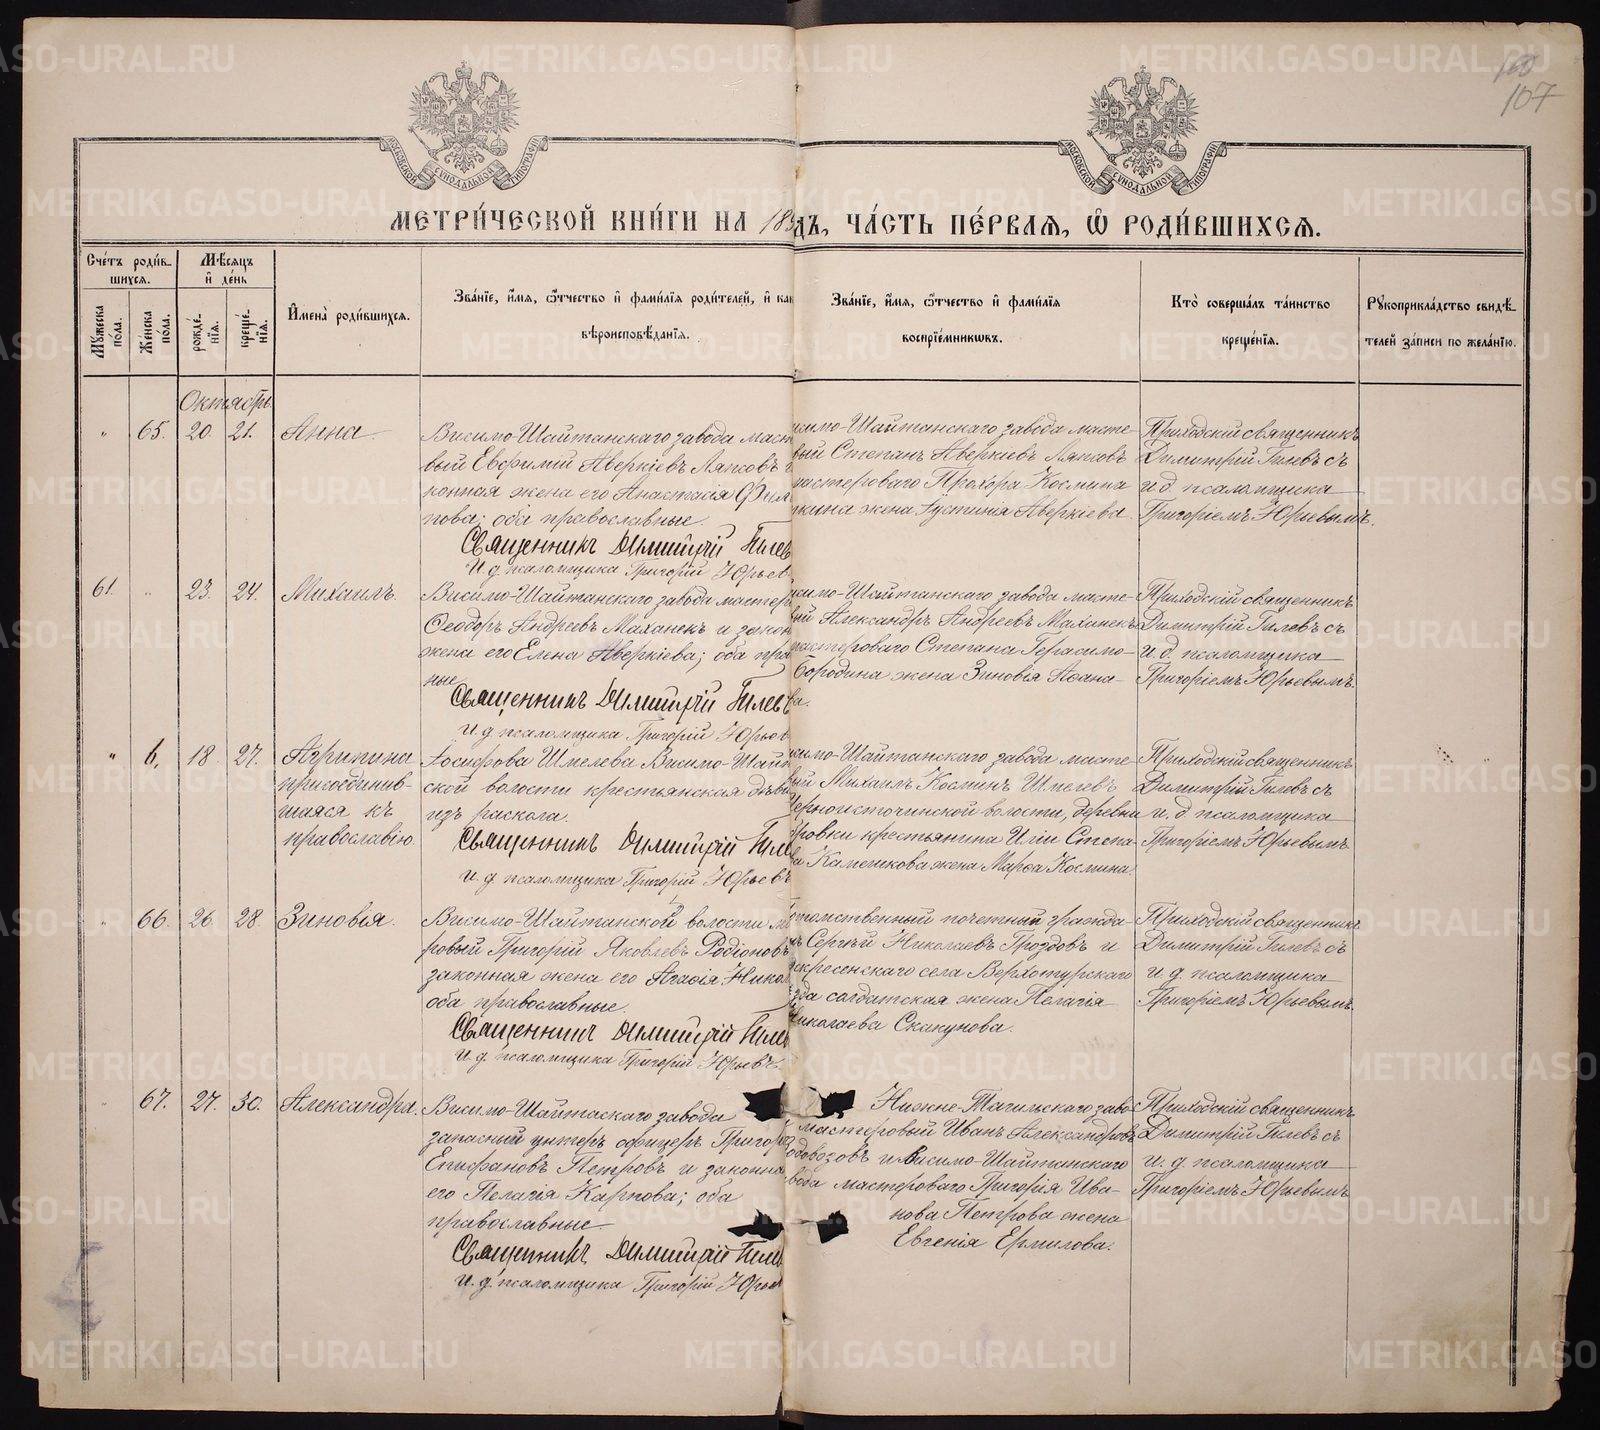 METRIKI.GASO-URAL.RU
107
МОСКОВСКОЙ СѴНОДАЛЬНОЙ ТИПОГРАФІИ
МОСКОВСКОЙ СѴНОДАЛЬНОЙ ТИПОГРАФІИ
МЕТРИ́ЧЕСКОЙ КНИ́ГИ НА 189
дъ, ЧА́СТЬ ПЕ́РВАЯ, Ѽ РОДИ́ВШИХСЯ.
Сче́тъ роди́в-
шихся.
Мѣ́сяцъ
и҆ де́нь
Мꙋ́жеска по́ла.
Же́нска по́ла.
рожде́-
нія.
креще́-
нія.
И҆мена̀ роди́вшихся.
Зва́ніе, и҆́мя, ѻ҆́тчество и҆ фами́лія роди́телей, и҆ как
вѣроисповѣ́данія.
Зва́ніе, и҆́мя, ѻ҆́тчество и҆ фами́лія
воспріе́мниковъ.
Кто̀ соверша́лъ та́инство
креще́нія.
Рꙋкоприкла́дство свидѣ́-
телей за́писи по жела́нію.
Октябрь
" 65. 20. 21. Анна
Висимо-Шайтанскаго завода маст
вый Евфимій Аверкіевъ Ляпсовъ
конная жена его Анастасія Фил
пова; оба православные.
Священникъ Димитрій Гилев
И. д. псаломщика Григорій Юрьев
симо-Шайтанскаго завода масте-
вый Степанъ Аверкіевъ Ляпсов
мастероваго Прохора Космина
кина жена Іустинія Аверкіева
Приходскій священникъ
Димитрій Гилевъ съ
и д. псаломщика
Григоріемъ Юрьевымъ.
61. " 23. 24. Михаилъ.
Висимо-Шайтанскаго завода мастер
Ѳеодоръ Андреевъ Маханекъ и закон
жена его Елена Аверкіева; оба пра
ные
Священникъ Димитрій Гилевъ
И. д. псаломщика Григорій Юрьев
симо-Шайтанскаго завода масте-
вый Александръ Андреевъ Маханекъ
мастероваго Степана Герасимо-
Бородина жена Зиновія Аѳана-
ва.
Приходскій священникъ
Димитрій Гилевъ съ
и д. псаломщика
Григоріемъ Юрьевымъ.
" 6. 18. 27. Агрипина
присоединив-
шаяся къ
православію.
Іосифова Шмелева Висимо-Шайт
ской волости крестьянская дѣви
изъ раскола.
Священникъ Димитрій Гиле
И. д. псаломщика Григорій Юрьевъ
симо-Шайтанскаго завода масте-
вый Михаилъ Косминъ Шмелевъ
Черноисточинской волости, деревни
ровки крестьянина Иліи Степа-
ва Каменкова жена Марѳа Космина.
Приходскій священникъ
Димитрій Гилевъ съ
и. д. псаломщика
Григоріемъ Юрьевымъ.
" 66. 26. 28. Зиновія.
Висимо-Шайтанской волости м
ровый Григорій Яковлевъ Родіоновъ
законная жена его Агаѳія Никол
оба православные.
Священникъ Димитрій Гиле
И. д. псаломщика Григорій Юрьевъ.
томственный почетный гражда-
нъ Сергѣй Николаевъ Гроздовъ и
скресенскаго села Верхотурскаго
зда солдатская жена Пелагія
Николаева Скакунова.
Приходскій священникъ
Димитрій Гилевъ съ
и. д. псаломщика
Григоріемъ Юрьевымъ.
" 67. 27. 30. Александра.
Висимо-Шайтаскаго завода
запасный унтеръ офицеръ Григор
Епифановъ Петровъ и законна
его Пелагія Карпова; оба
православные
Священникъ Димитрій Гиле
И. д. псаломщика Григорій Юрьев
Нижне-Тагильскаго заво-
мастеровый Иванъ Александровъ
довозовъ и Висимо-Шайтанскаго
вода мастероваго Григорія Ива-
нова Петрова жена
Евгенія Ермилова.
Приходскій священникъ
Димитрій Гилевъ съ
и. д. псаломщика
Григоріемъ Юрьевымъ